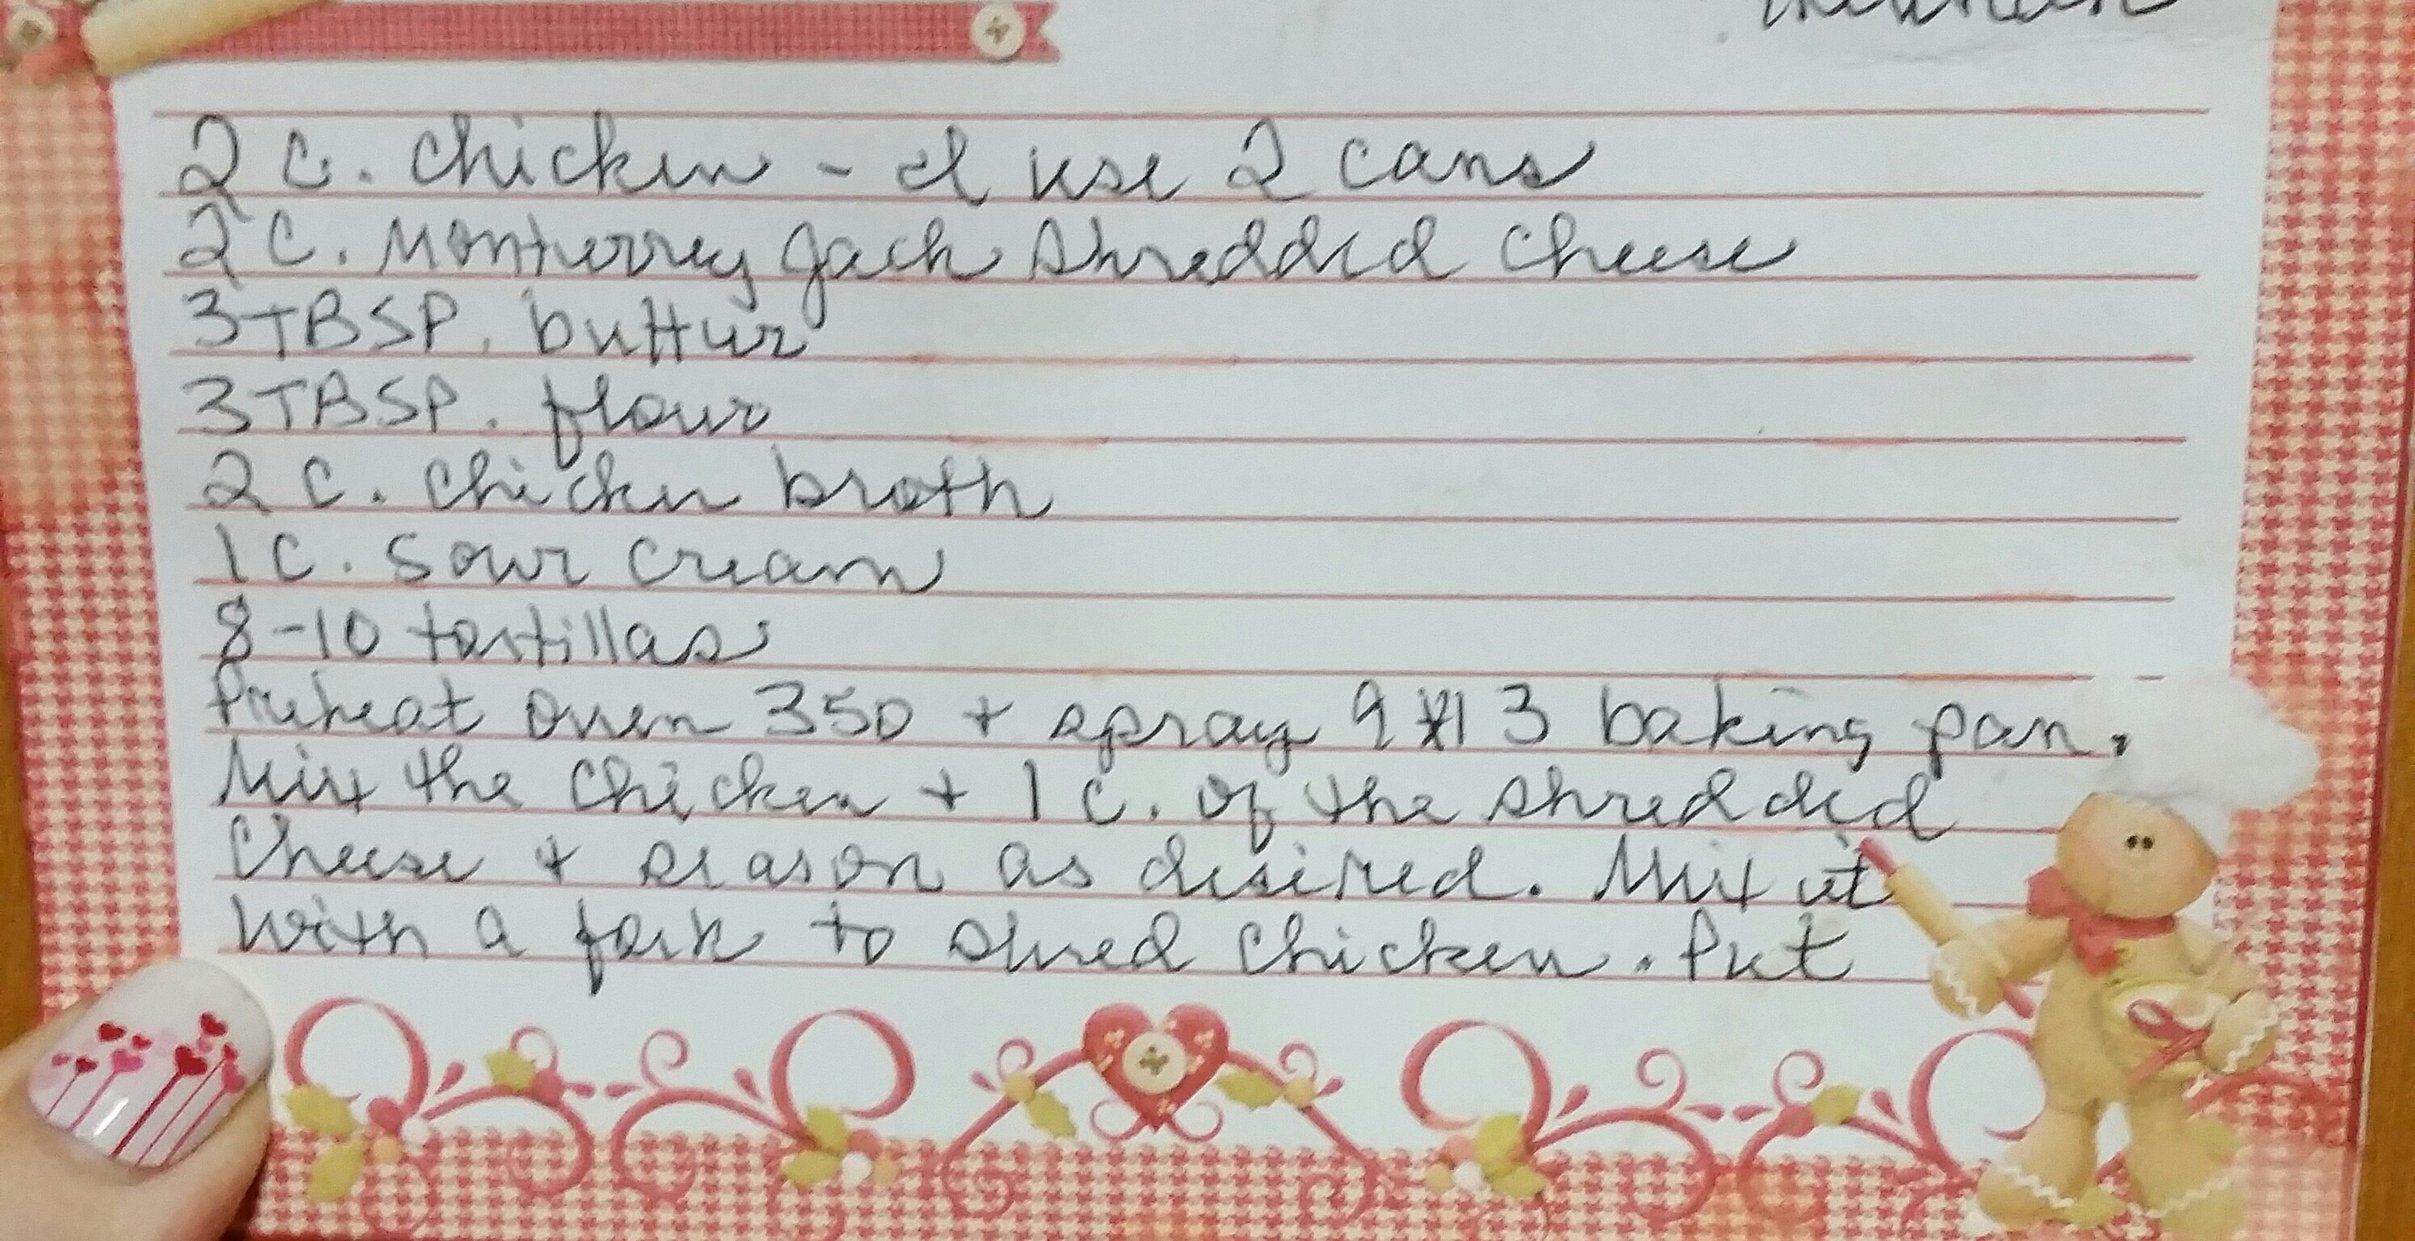 2 C. chicken - I use 2 cans
2 C. Monterrey Jack shredded cheese
3 TBSP. butter
3 TBSP. flour
2 C. chicken broth
1 C. sour cream
8-10 tortillas
Preheat oven 350 + spray 9x13 baking pan.
Mix the chicken + 1 C. of the shredded
cheese + season as desired. Mix it
with a fork to shred chicken. Put